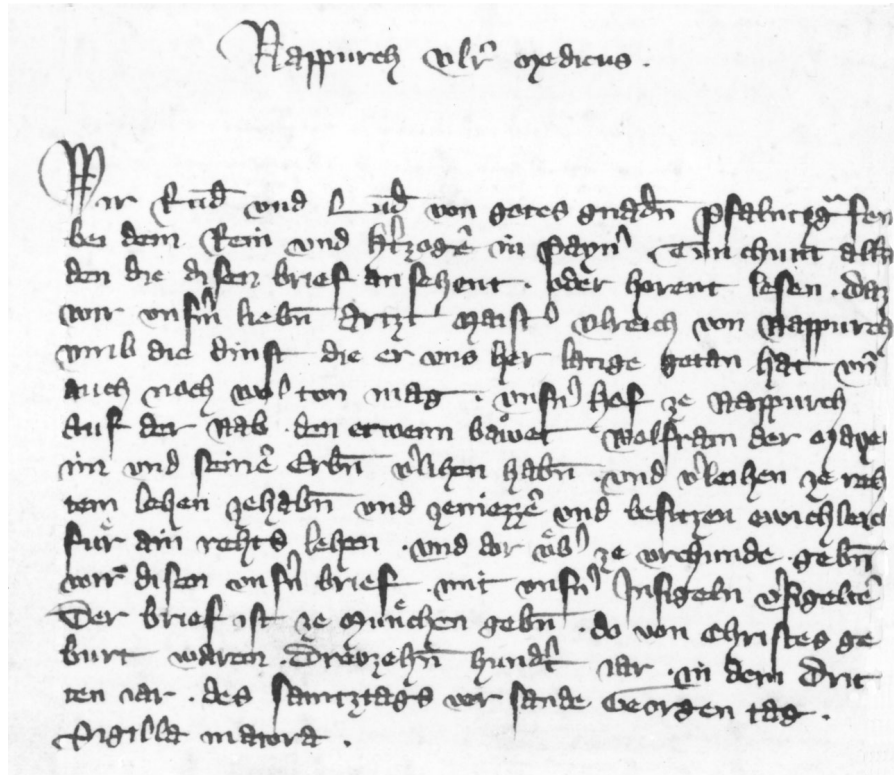 Nappurch vlr̄ medicus .
Wir Rud̄ vnd Lud̄ von gotes gnadn̄ pfalntzgͣfen
bei dem Rein vnd h̓tzogē in Bayn̓ Tun chunt alln̄
den die disen brief ansehent . oder horent lesen . daz
wir vnsm̓ liebn̄ Artzt Maist̓ vlreich von Nappurch
vmb die dinst die er vns her lange getan hat vn̄
auch noch wol ton mag . vnsn̓ Hof ze Nappurch
Auf der Nab . den etwenn bawet Wolfram der Mayer
im vnd seinē Erbn̄ v̓lihen habn̄ . vnd v̓leihen ze reh
tem lehen zehabn̄ vnd zeniezzē vnd besitzen ewichleich
fuͤr ain rehts lehen . vnd dar vͤb̓ ze vrchunde . gebn̄
wir disen vnsn̓ brief . mit vnsn̓ Insigeln v̓sigeltē
Der brief ist ze Muͤnchen gebn̄ . do von Christes ge
burt waren . Drevzehn̄ hund̓t iar . in dem Drit
ten iar . des samtztags vor sande Georgen tag .
Sigilla maiora .